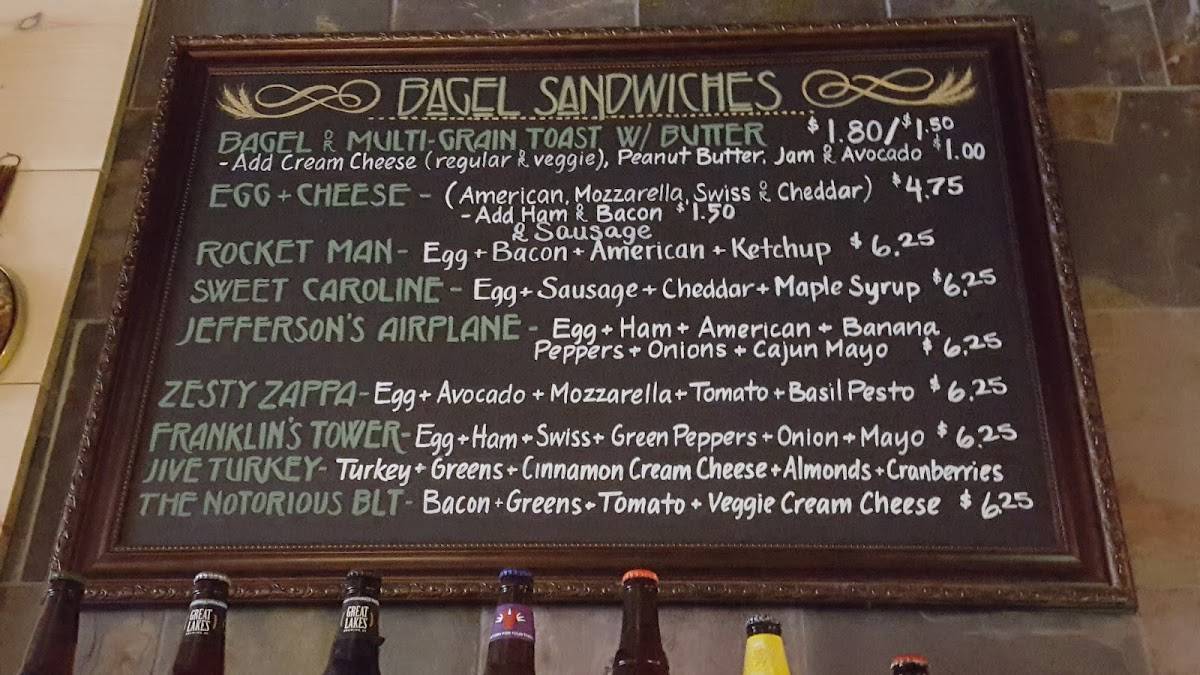 BAGEL SANDWICHES
BAGEL OR MULTI-GRAIN TOAST W/ BUTTER $1.80/$1.50
- Add Cream Cheese (regular & veggie), Peanut Butter, Jam & Avocado $1.00
EGG + CHEESE - (American, Mozzarella, Swiss OR Cheddar) $4.75
- Add Ham & Bacon $1.50
& Sausage
ROCKET MAN - Egg + Bacon + American + Ketchup $6.25
SWEET CAROLINE - Egg + Sausage + Cheddar + Maple Syrup $6.25
JEFFERSON'S AIRPLANE - Egg + Ham + American + Banana
Peppers + Onions + Cajun Mayo $6.25
ZESTY ZAPPA - Egg + Avocado + Mozzarella + Tomato + Basil Pesto $6.25
FRANKLIN'S TOWER - Egg + Ham + Swiss + Green Peppers + Onion + Mayo $6.25
JIVE TURKEY - Turkey + Greens + Cinnamon Cream Cheese + Almonds + Cranberries
THE NOTORIOUS BLT - Bacon + Greens + Tomato + Veggie Cream Cheese $6.25
GREAT LAKES
GREAT LAKES